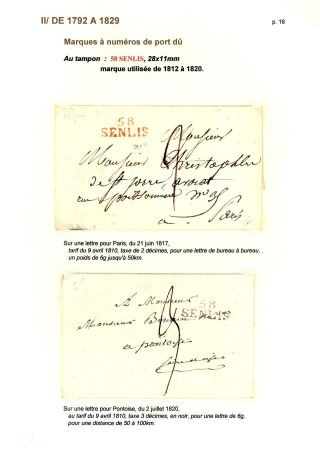 II/ DE 1792 A 1829
p. 16
Marques à numéros de port dû
Au tampon : 58 SENLIS, 28x11mm
marque utilisée de 1812 à 1820.
58
SENLIS
Monsieur
Monsieur Christophler
de St avocat
rue n° 35
a Paris
Sur une lettre pour Paris, du 21 juin 1817,
tarif du 9 avril 1810, taxe de 2 décimes, pour une lettre de bureau à bureau,
un poids de 6g jusqu'à 50km.
A Monsieur
58
SENLIS
Monsieur
a pontoise
Sur une lettre pour Pontoise, du 2 juillet 1820,
au tarif du 9 avril 1810, taxe 3 décimes, en noir, pour une lettre de 6g,
pour une distance de 50 à 100km.